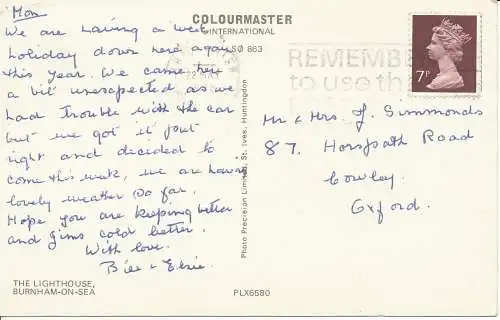 Mon
We are having a week
holiday down here again
this year. We came here
a bit unexspected as we
had trouble with the car
but we got it put
right and decided to
come this week, we are having
lovely weather so far.
Hope you are keeping better
and Jims cold better.
With love.
Bill & Elsie.
THE LIGHTHOUSE,
BURNHAM-ON-SEA
COLOURMASTER
INTERNATIONAL
SO 863
Photo Precision Limited, St. Ives, Huntingdon
PLX6580
REMEMBE
to use th
7P
Mr & Mrs. J. Simmonds
87. Horspath Road
Cowley.
Oxford.